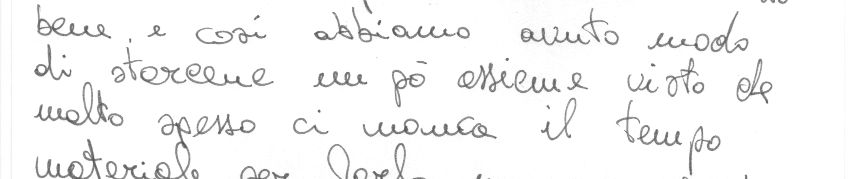 bene, e così abbiamo avuto modo
di starcene un pò assieme visto che
molto spesso ci manca il tempo
materiale per farlo